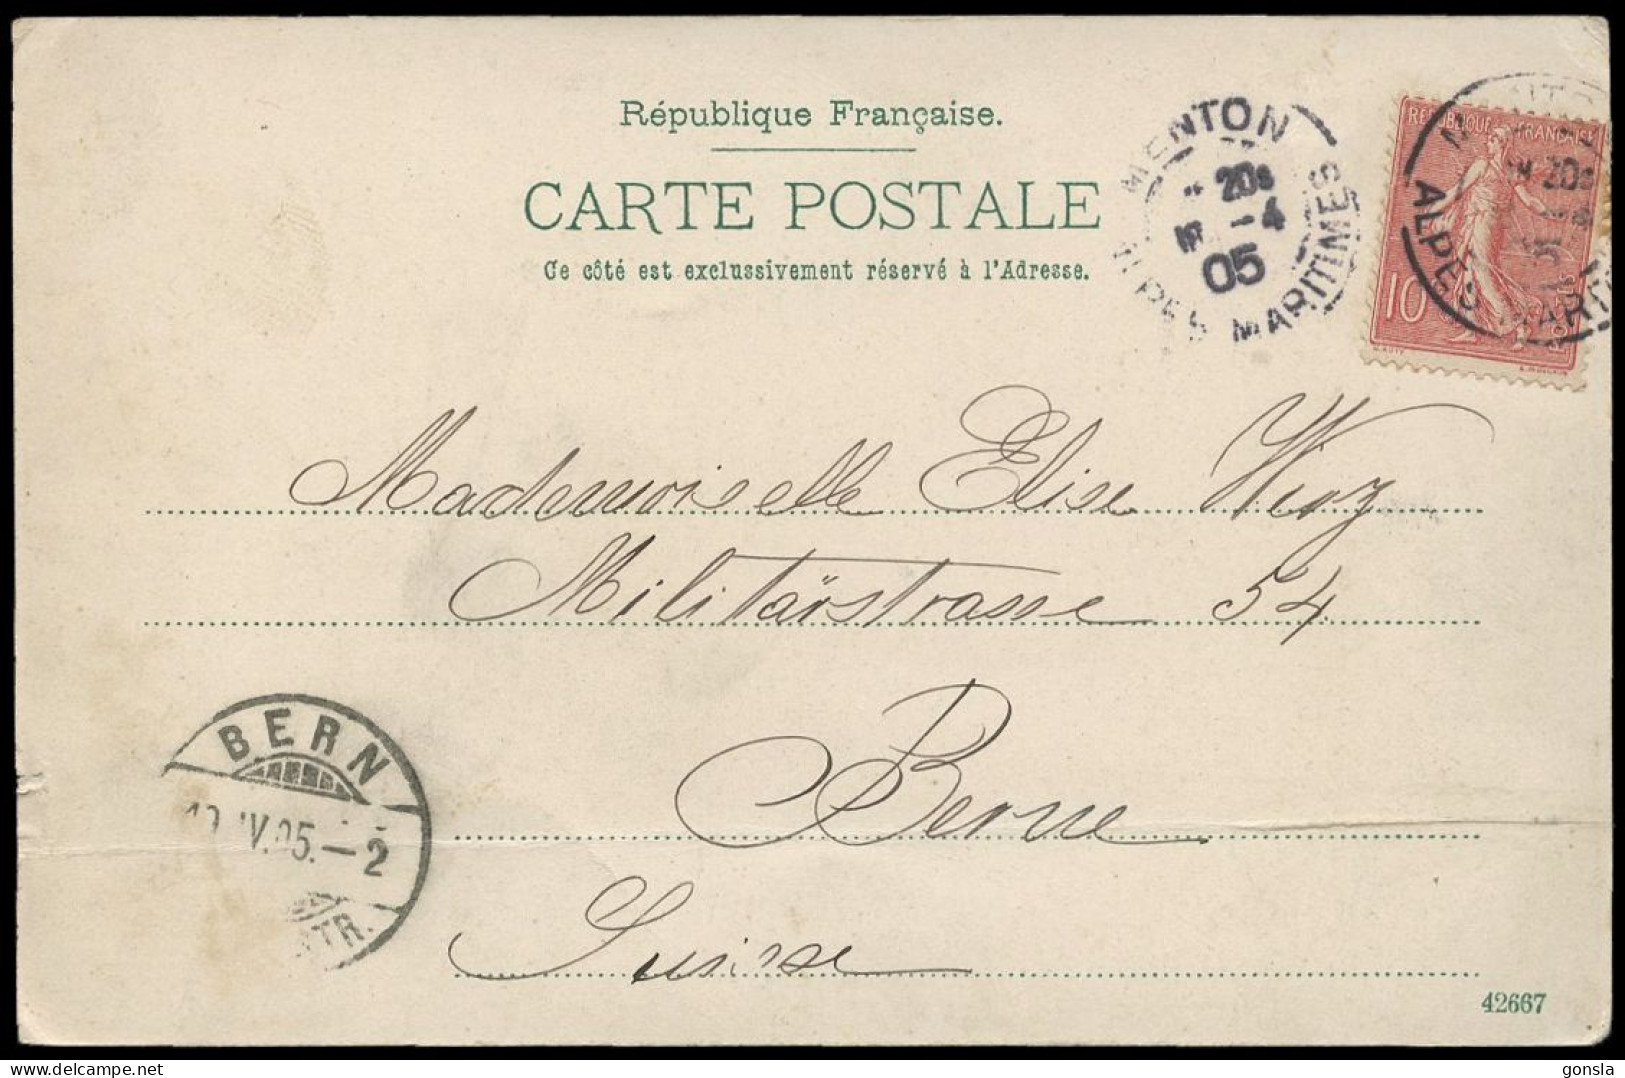 République Française.
CARTE POSTALE
Ce côté est exclussivement réservé à l'Adresse.
MENTON
20
-4
05
ALPES MARITIMES
REPUBLIQUE FRANÇAISE
10
ALPES MARIT
Mademoiselle Elise
Militärstrasse 54
Berne
Suisse
BERN
IV.05.-2
TR.
42667
gonsla